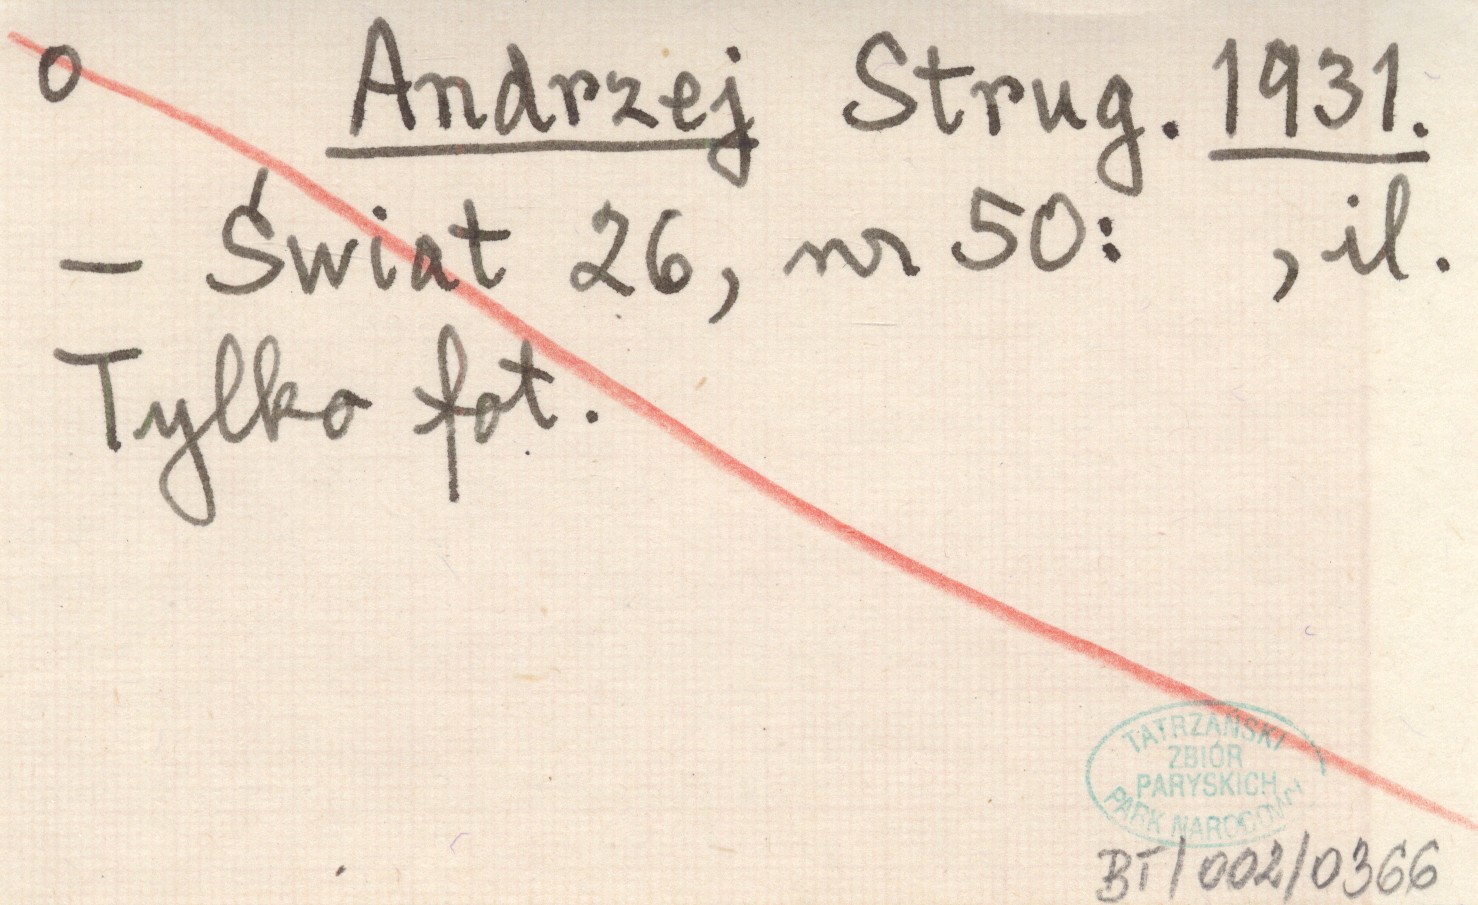 o Andrzej Strug. 1931.
– Świat 26, nr 50: , il.
Tylko fot.
TATRZAŃSKI
ZBIÓR
PARYSKICH
PARK NARODOWY
BT/002/0366